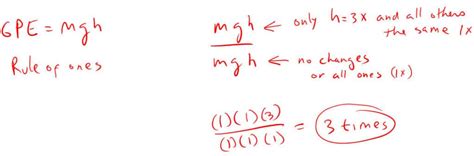 GPE = mgh
Rule of ones
mgh ← only h=3x and all others
the same 1x
mgh ← no changes
or all ones (1x)
(1)(1)(3)
(1)(1)(1) = 3 times